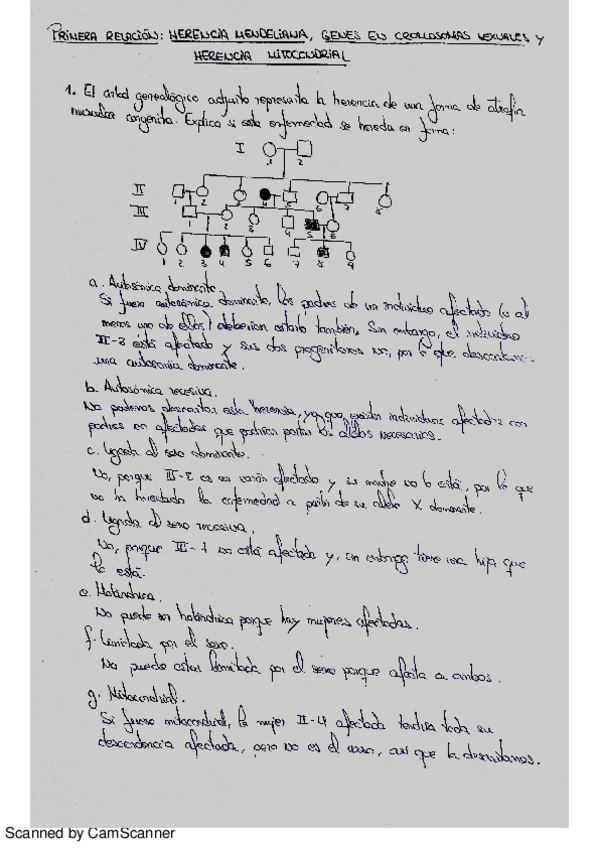 PRIMERA RELACIÓN: HERENCIA MENDELIANA, GENES EN CROMOSOMAS SEXUALES Y
HERENCIA MITOCONDRIAL
1. El árbol genealógico adjunto representa la herencia de una forma de atrofia
muscular congénita. Explica si esta enfermedad se hereda en forma:
I
1 2
II
1 2 3 4 5 6 7 8
III
1 2 3 4 5 6
IV
1 2 3 4 5 6 7 8 9
a. Autosómica dominante.
Si fuera autosómica dominante, los padres de un individuo afectado (o al
menos uno de ellos) deberían estarlo también. Sin embargo, el individuo
está afectado y sus dos progenitores no, por lo que descartamos
una autosomía dominante.
b. Autosómica recesiva.
No podemos descartar esta herencia, ya que existen individuos afectados con
padres no afectados que podrían portar los alelos necesarios.
c. Ligada al sexo dominante.
No, porque es un varón afectado y su madre no lo está, por lo que
no ha heredado la enfermedad a partir de su alelo X dominante.
d. Ligada al sexo recesiva.
No, porque III-1 no está afectado y, sin embargo, tiene una hija que
lo está.
e. Holándrica.
No puede ser holándrica porque hay mujeres afectadas.
f. Limitada por el sexo.
No puede estar limitada por el sexo porque afecta a ambos.
g. Mitocondrial.
Si fuera mitocondrial, la mujer II-4 afectada tendría toda su
descendencia afectada, pero no es el caso, así que la descartamos.
Scanned by CamScanner